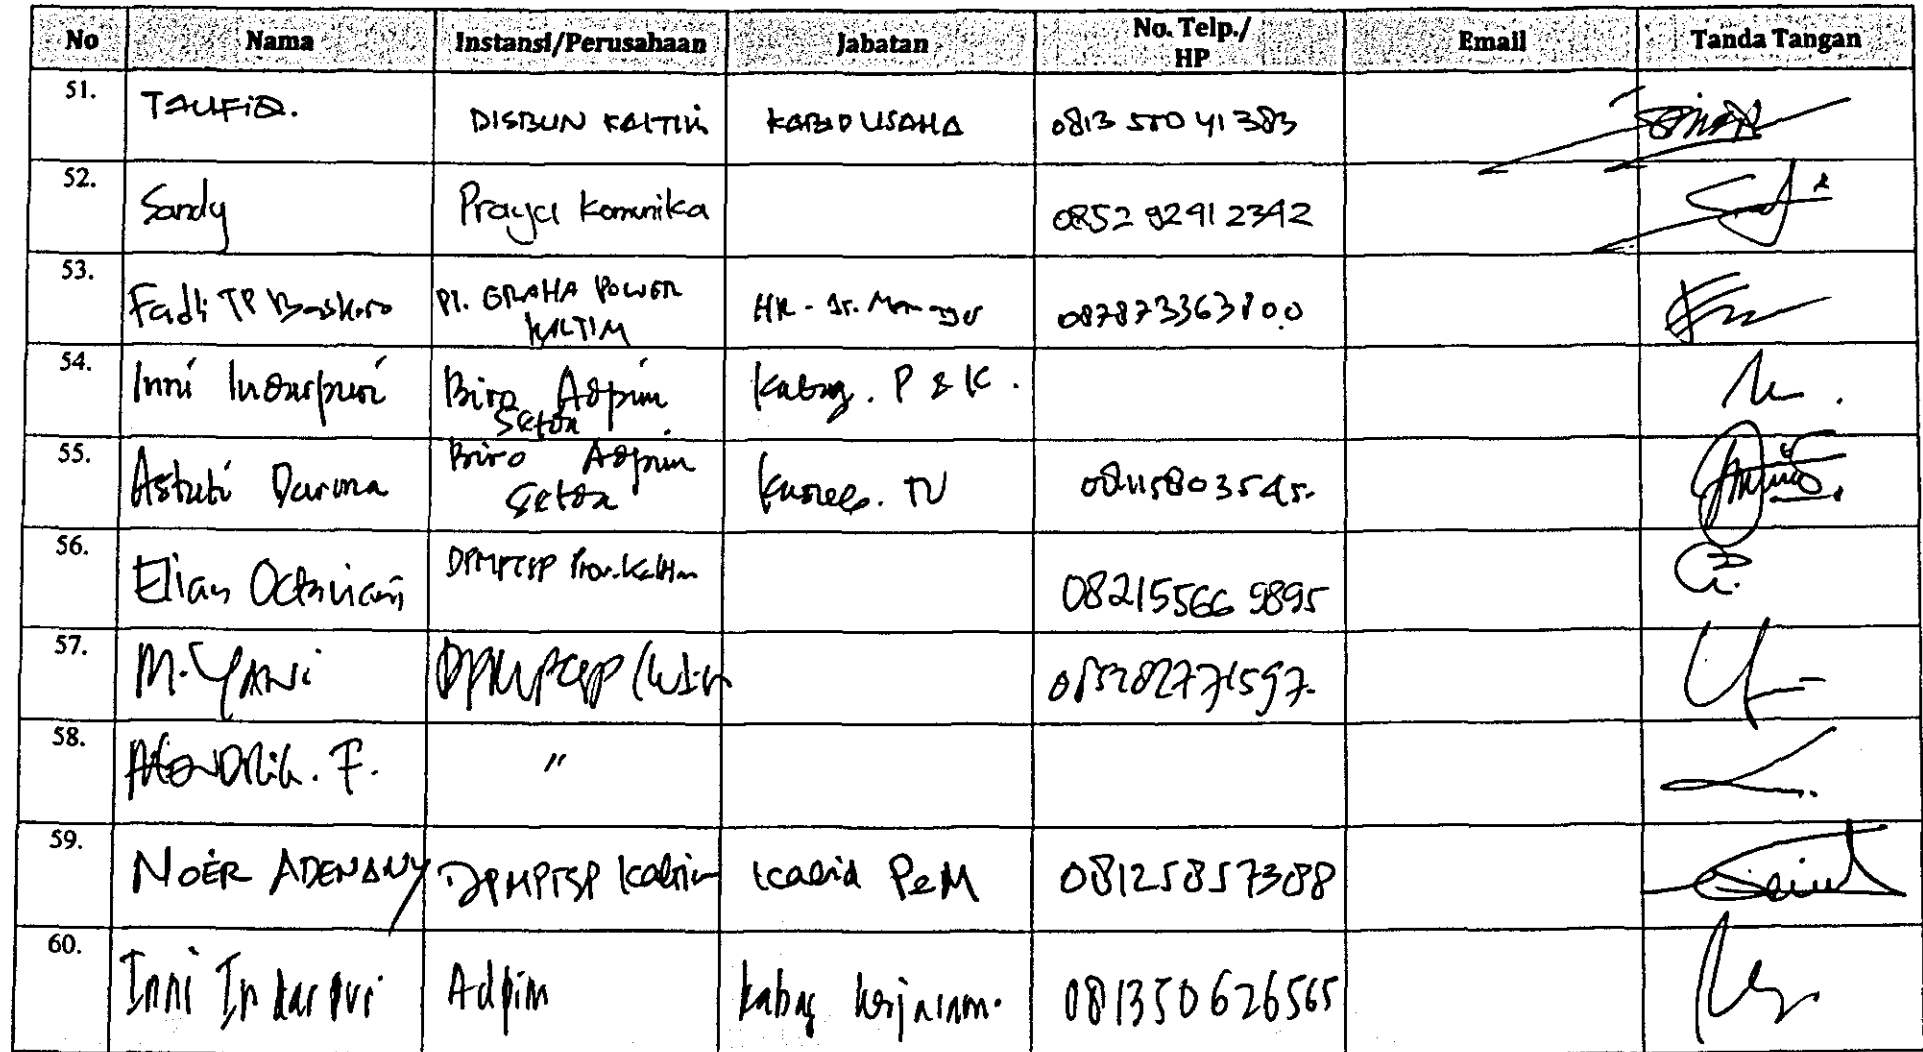 No Nama Instansi/Perusahaan Jabatan No. Telp./ HP Email Tanda Tangan
51. TAUFIQ. DISBUN KALTIM KABID USAHA 0813 550 41 383
52. Sandy Prayja Komunika 0852 9291 2342
53. Fadli TP Baskoro PT. GRAHA POWER KALTIM HR - Sr. Manager 087873363800
54. Inni Indarpuri Biro Adpim Setda Kabag. P & K.
55. Astuti Darma Biro Adpim Setda TU
56. Elian Octaviani DPMPTSP Prov. Kaltim 082155665895
57. M. YANI DPMPTSP
58. HENDRIK. F. "
59. NOER ADENANY DPMPTSP Kaltim Kabid PPM 08125857388
60. Inni Indarpuri Adpim Kabag Kerjasam. 081350626565